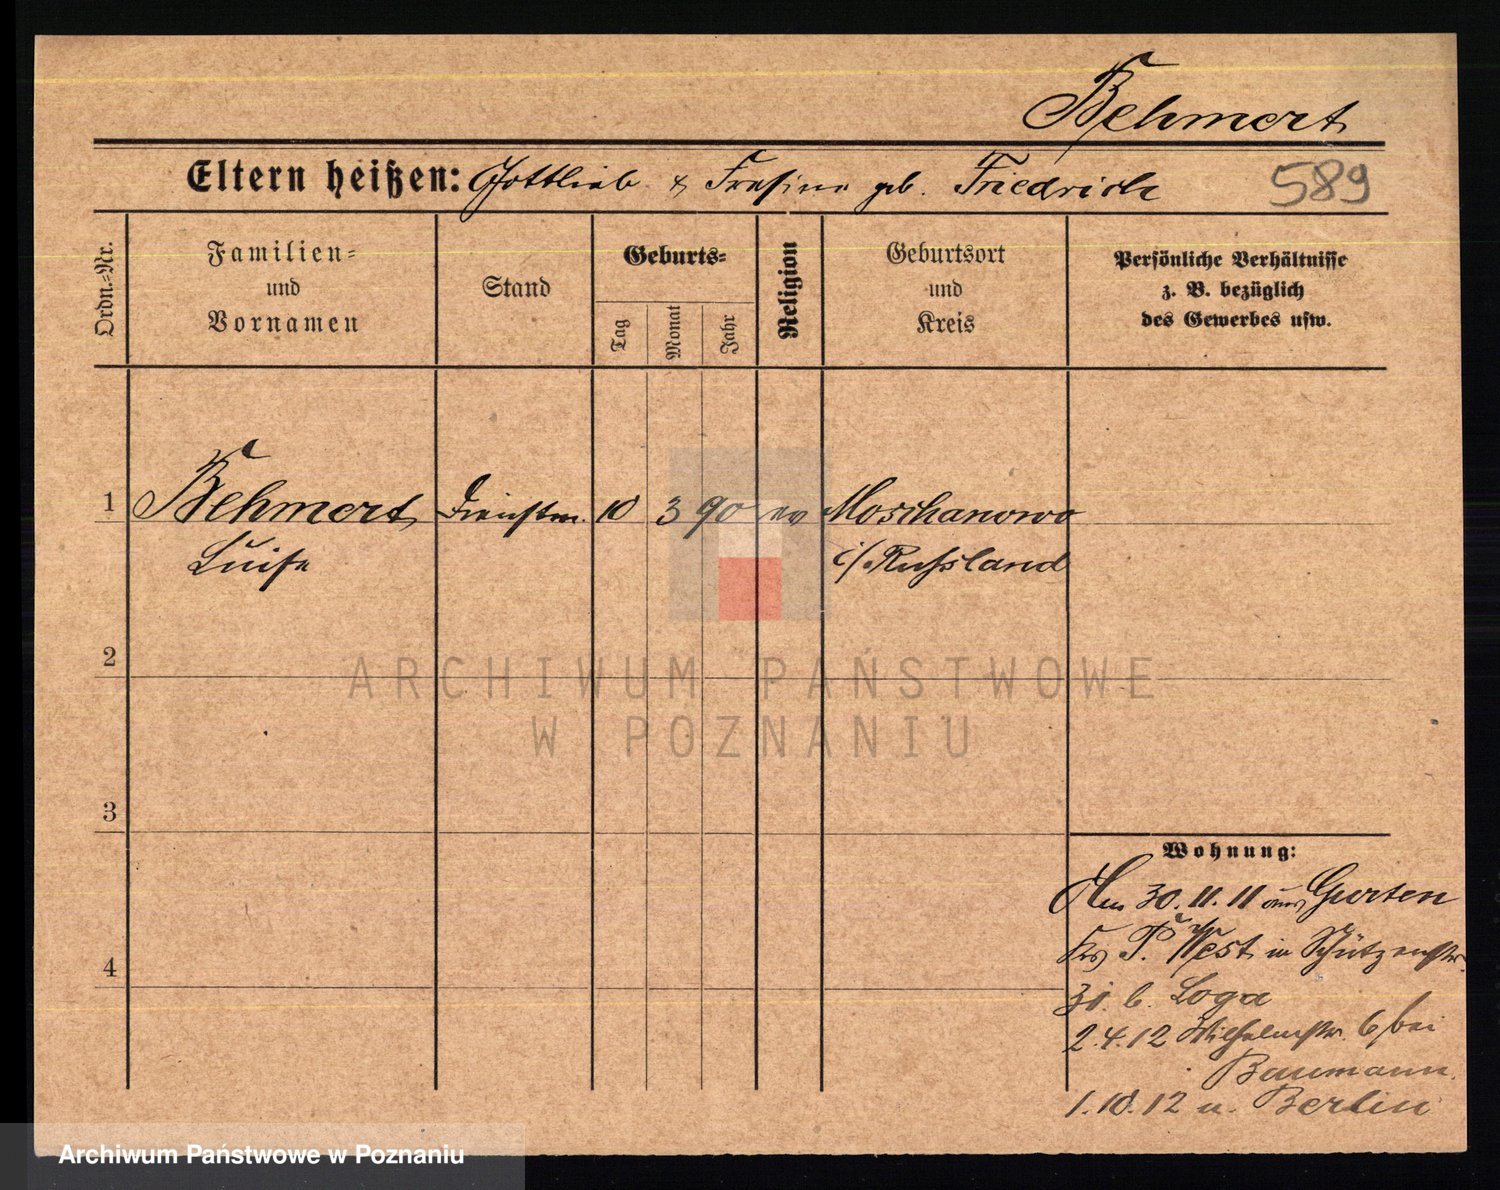 Behmert
Eltern heißen: Gottlieb & geb. Friedrich
589
Ordn.-Nr.
Familien-
und
Vornamen
Stand
Geburts-
Tag
Monat
Jahr
Religion
Geburtsort
und
Kreis
Persönliche Verhältnisse
z. B. bezüglich
des Gewerbes usw.
1 Behmert Dienstm. 10 3 90 ev Moschanowo
Luise i/Russland
2
3
4
Wohnung:
Am 30.11.11 aus Gurten
Krs P. West in Schützenstr.
31 b. Loga
2.4.12 Wilhelmstr. 6 bei
Baumann
1.10.12 n. Berlin
ARCHIWUM PAŃSTWOWE
W POZNANIU
Archiwum Państwowe w Poznaniu